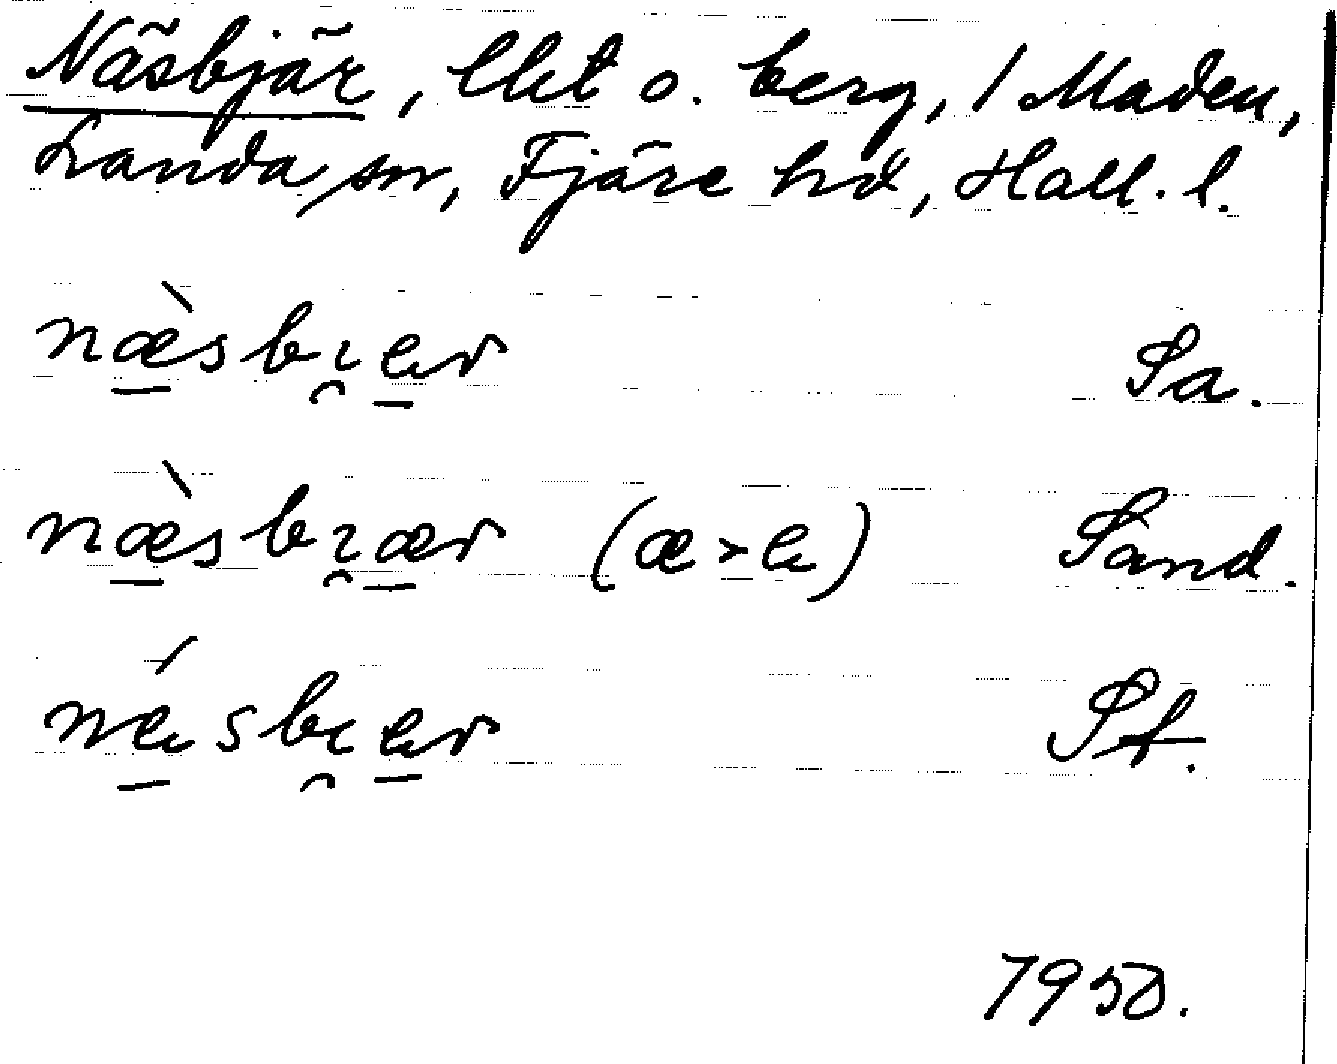 Näsbjär, lht o. berg, / Maden,
Landa sn, Fjäre hd, Hall. l.
næ̀sbɩ̯er Sa.
næ̀sbɩ̯ær (æ > e) Sand.
nésbɩ̯er St.
1950.